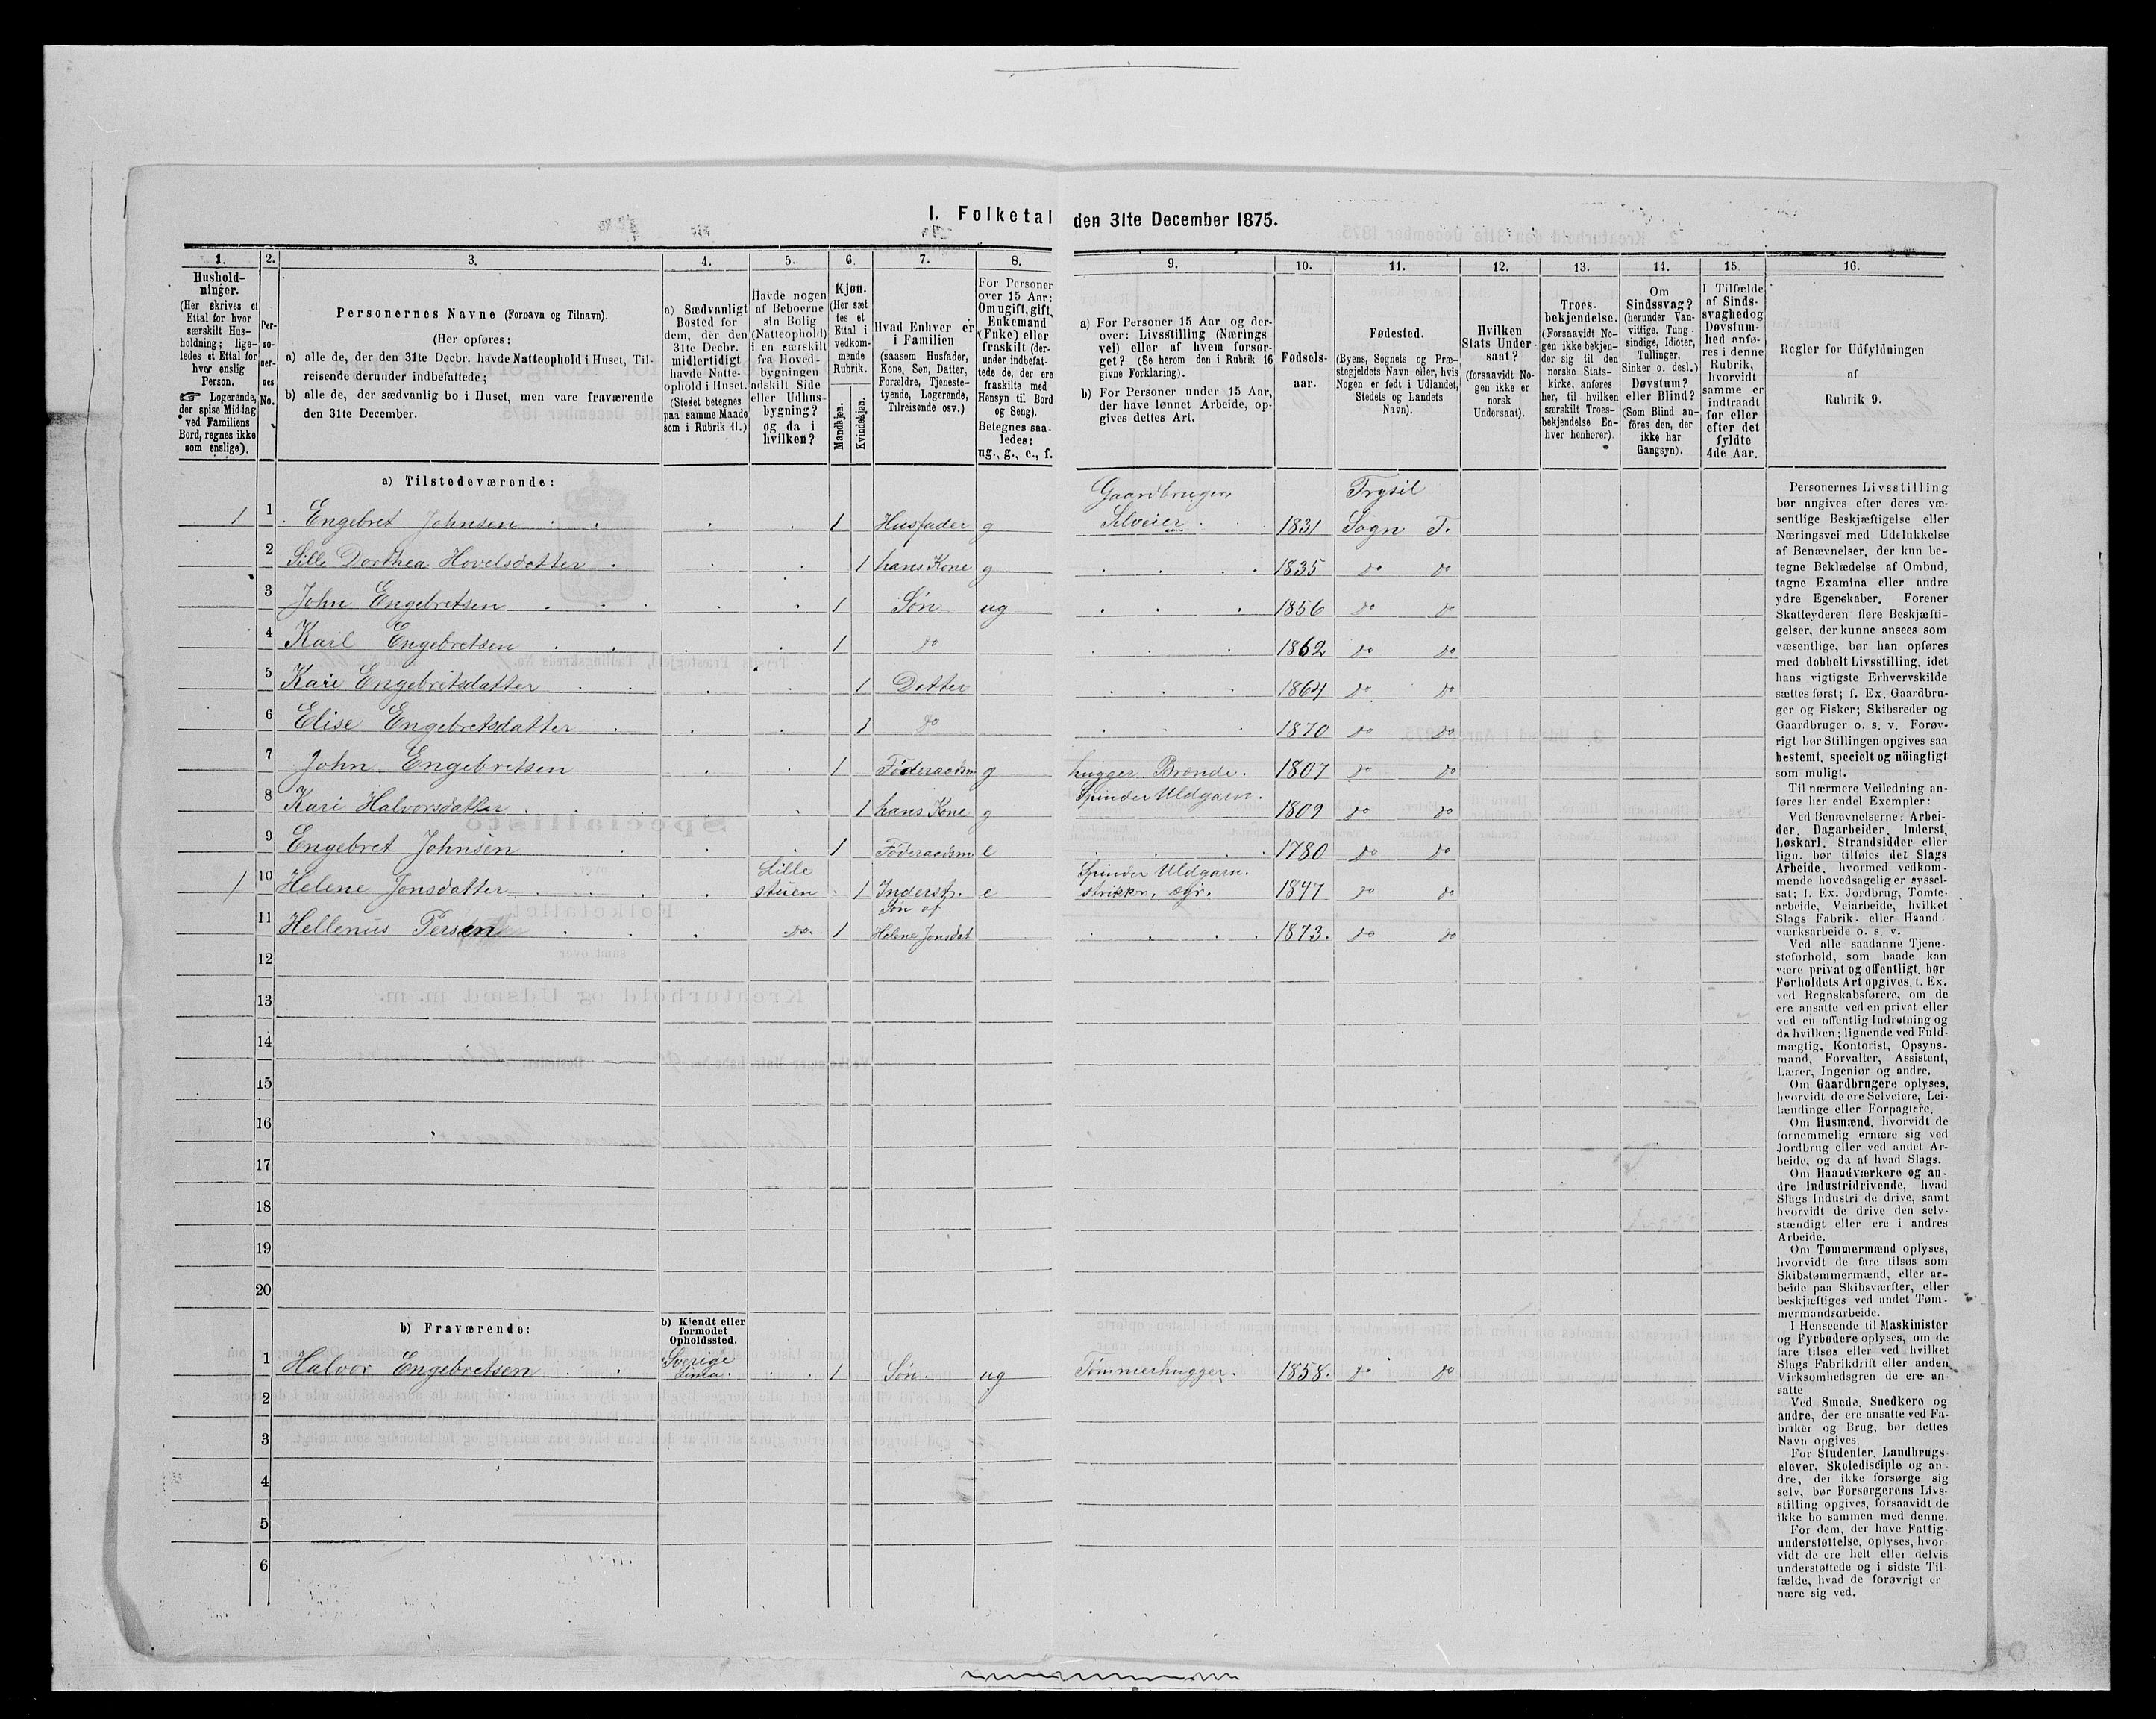 I. Folketal den 31te December 1875.
1. 2. 3. 4. 5. 6. 7. 8. 9. 10. 11. 12. 13. 14. 15. 16.
Hushold-
ninger.
(Her skrives et
Ettal for hver
særskilt Hus-
holdning; lige-
ledes et Ettal for
hver enslig
Person.
☞ Logerende,
der spise Middag
ved Familiens
Bord, regnes ikke
som enslige).
Per-
so-
ner-
nes
No.
Personernes Navne (Fornavn og Tilnavn).
(Her opføres:
a) alle de, der den 31te Decbr. havde Natteophold i Huset, Til-
reisende derunder indbefattede;
b) alle de, der sædvanlig bo i Huset, men vare fraværende
den 31te December.
a) Sædvanligt
Bosted for
dem, der den
31te Decbr.
midlertidigt
havde Natte-
ophold i Huset.
(Stedet betegnes
paa samme Maade
som i Rubrik 11.)
Havde nogen
af Beboerne
sin Bolig
(Natteophold)
i en særskilt
fra Hoved-
bygningen
adskilt Side
eller Udhus-
bygning?
og da i
hvilken?
Kjøn.
(Her sæt-
tes et
Ettal i
vedkom-
mende
Rubrik.
Mandkjøn.
Kvindekjøn.
Hvad Enhver er
i Familien
(saasom Husfader,
Kone, Søn, Datter,
Forældre, Tjeneste-
tyende, Logerende,
Tilreisende osv.)
For Personer
over 15 Aar:
Om ugift, gift,
Enkemand
(Enke) eller
fraskilt (der-
under indbefat-
tede de, der ere
fraskilte med
Hensyn til Bord
og Seng).
Betegnes saa-
ledes:
ug., g., e., f.
a) For Personer 15 Aar og der-
over: Livsstilling (Nærings
vei) eller af hvem forsør-
get? (Se herom den i Rubrik 16
givne Forklaring).
b) For Personer under 15 Aar,
der have lønnet Arbeide, op-
gives dettes Art.
Fødsels-
aar.
Fødested.
(Byens, Sognets og Præ-
stegjeldets Navn eller, hvis
Nogen er født i Udlandet,
Stedets og Landets
Navn).
Hvilken
Stats Under-
saat?
(forsaavidt No-
gen ikke er
norsk
Undersaat).
Troes-
bekjendelse.
(Forsaavidt No-
gen ikke bekjen-
der sig til den
norske Stats-
kirke, anføres
her, til hvilken
særskilt Troes-
bekjendelse En-
hver henhører).
Om
Sindssvag?
(herunder Van-
vittige, Tung-
sindige, Idioter,
Tullinger,
Sinker o. desl.)
Døvstum?
eller Blind?
(Som Blind an-
føres den, der
ikke har
Gangsyn).
I Tilfælde
af Sinds-
svaghed og
Døvstum-
hed anfø-
res i denne
Rubrik,
hvorvidt
samme er
indtraadt
før eller
efter det
fyldte
4de Aar.
Regler for Udfyldningen
af
Rubrik 9.
a) Tilstedeværende:
Gaardbruger Trysil
1 1 Engebret Johnsen 1 Husfader g Selveier 1831 Sogn T.
2 Sille Dorthea Hovelsdatter 1 hans Kone g 1835 do do
3 John Engebretsen 1 Søn ug 1856 do do
4 Karl Engebretsen 1 do 1862 do do
5 Kari Engebritsdatter 1 Datter 1864 do do
6 Elise Engebretsdatter 1 do 1870 do do
7 John Engebretsen 1 Føderaadsm g hugger Brænde. 1807 do do
8 Kari Halvorsdatter 1 hans Kone g Spinder Uldgarn. 1809 do do
9 Engebret Johnsen 1 Føderaadsm e 1780 do do
1 10 Helene Jonsdatter Lille stuen 1 Inderst. e Spinder Uldgarn. strikker, 1847 do do
11 Hellenus Persen do 1 Søn af Helene Jonsdat 1873. do do
12
13
14
15
16
17
18
19
20
b) Fraværende:
b) Kjendt eller
formodet
Opholdssted.
1 Halvor Engebretsen Sverige Lima. 1 Søn ug Tømmerhugger. 1858. do do
2
3
4
5
6
Personernes Livsstilling
bør angives efter deres væ-
sentlige Beskjæftigelse eller
Næringsvei med Udelukkelse
af Benævnelser, der kun be-
tegne Beklædelse af Ombud,
tagne Examina eller andre
ydre Egenskaber. Forener
Skatteyderen flere Beskjæfti-
gelser, der kunne ansees som
væsentlige, bør han opføres
med dobbelt Livsstilling, idet
hans vigtigste Erhvervskilde
sættes først; f. Ex. Gaardbru-
ger og Fisker; Skibsreder og
Gaardbruger o. s. v. Forøv-
rigt bør Stillingen opgives saa
bestemt, specielt og nöiagtigt
som muligt.
Til nærmere Veiledning an-
føres her endel Exempler:
Ved Benævnelserne: Arbei-
der, Dagarbeider, Inderst,
Løskarl, Strandsidder eller
lign. bør tilføies det Slags
Arbeide, hvormed vedkom-
mende hovedsagelig er syssel-
sat; f. Ex. Jordbrug, Tomte-
arbeide, Veiarbeide, hvilket
Slags Fabrik- eller Haand-
værksarbeide o. s. v.
Ved alle saadanne Tjene-
steforhold, som baade kan
være privat og offentligt, bør
Forholdets Art opgives, f. Ex.
ved Regnskabsførere, om de
ere ansatte ved en privat eller
ved en offentlig Indretning og
da hvilken; lignende ved Fuld-
mægtig, Kontorist, Opsyns-
mand, Forvalter, Assistent,
Lærer, Ingeniør og andre.
Om Gaardbrugere oplyses,
hvorvidt de ere Selveiere, Lei-
lændinge eller Forpagtere.
Om Husmænd, hvorvidt de
fornemmelig ernære sig ved
Jordbrug eller ved andet Ar-
beide, og da af hvad Slags.
Om Haandværkere og an-
dre Industridrivende, hvad
Slags Industri de drive, samt
hvorvidt de drive den selv-
stændigt eller ere i andres
Arbeide.
Om Tømmermænd oplyses,
hvorvidt de fare tilsøs som
Skibstømmermænd, eller ar-
beide paa Skibsværfter, eller
beskjæftiges ved andet Tøm-
mermandsarbeide.
I Henseende til Maskinister
og Fyrbødere oplyses, om de
fare tilsøs eller ved hvilket
Slags Fabrikdrift eller anden
Virksomhedsgren de ere an-
satte.
Ved Smede, Snedkere og
andre, der ere ansatte ved Fa-
briker og Brug, bør dettes
Navn opgives.
For Studenter, Landbrugs-
elever, Skoledisciple og an-
dre, der ikke forsørge sig
selv, bør Forsørgerens Livs-
stilling opgives, forsaavidt de
ikke bo sammen med denne.
For dem, der have Fattig-
understøttelse, oplyses, hvor-
vidt de ere helt eller delvis
understøttede og i sidste Til-
fælde, hvad de forøvrigt er-
nære sig ved.